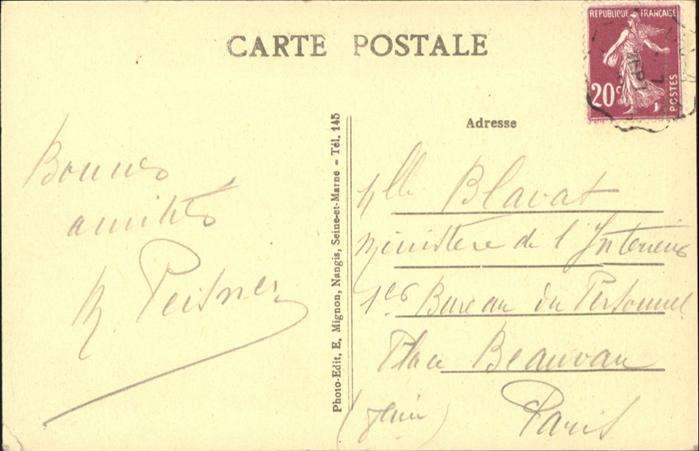 CARTE POSTALE
REPUBLIQUE FRANÇAISE
20c
POSTES
Bonnes
amitiés
Photo-Edit, E. Mignon, Nangis, Seine-et-Marne - Tél. 145
Adresse
Mlle Blavat
Ministère de l'Intérieur
1er Bureau du Personnel
Place Beauvau
Paris